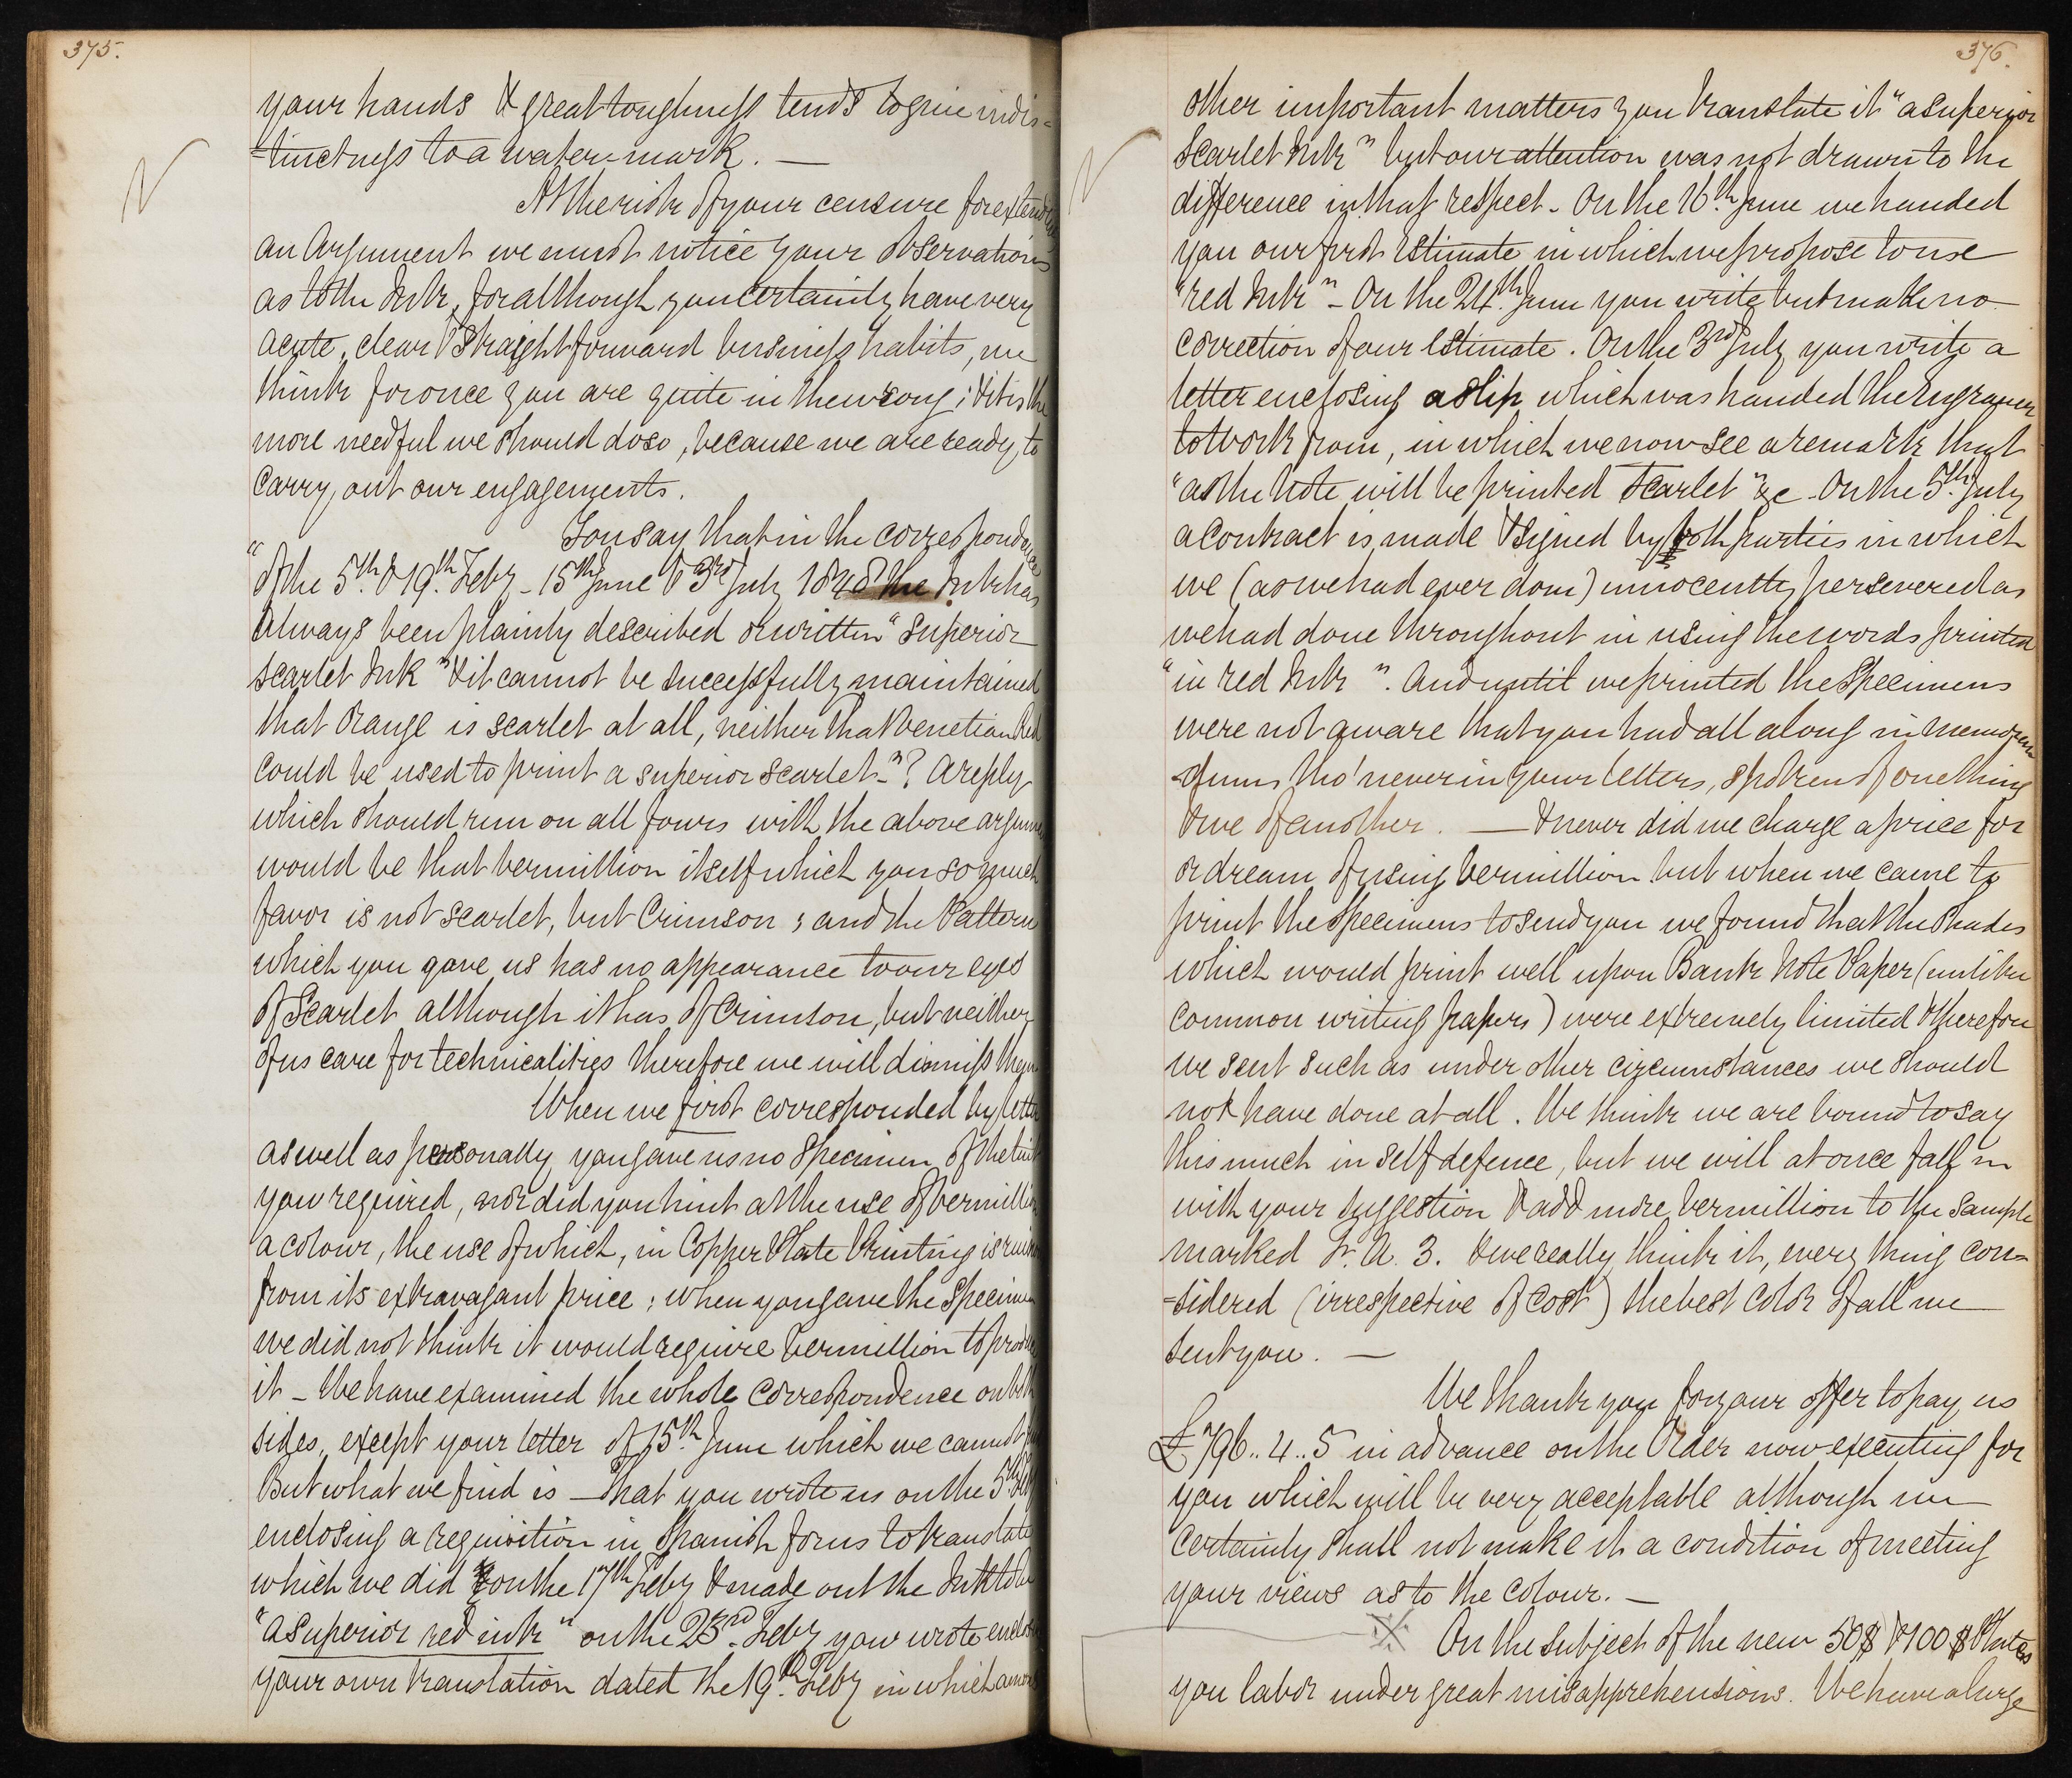 375.
your hands & great toughness tends to give indis=
=tinctness to a water-mark. —
At the risk of your censure for extending
an Argument we must notice your observations
as to the Ink, for although you certainly have very
acute, clear & straightforward business habits, we
think for once you are quite in the wrong; & it is the
more needful we should do so, because we are ready to
carry out our engagements.
You say that in the correspondence
"of the 5th. & 19th. Feby - 15th June & 3rd July 1848 the Ink has
always been plainly described or written "superior
scarlet Ink" & it cannot be successfully maintained
that Orange is scarlet at all, neither that Venetian Red
could be used to print a superior scarlet -"? A reply
which should run on all fours with the above argument
would be that vermillion itself which you so much
favor is not scarlet, but Crimson; and the Pattern
which you gave us has no appearance to our eyes
of Scarlet although it has of Crimson, but neither
of us care for technicalities therefore we will dismiss them
When we first corresponded by letter
as well as personally you gave us no specimen of the tint
you required, nor did you hint at the use of vermillion
a colour, the use of which, in Copper Plate Printing is ruinous
from its extravagant price; when you gave the Specimen
we did not think it would require vermillion to produce
it - We have examined the whole correspondence on both
sides, except your letter of 15th. June which we cannot find
But what we find is — that you wrote us on the 5th. Feby
enclosing a requisition in Spanish for us to translate
which we did on the 17th Feby & made out the Ink to be
"a superior red ink" on the 23rd. Feby you wrote enclosing
your own translation dated the 19th. Feby in which among
376.
other important matters you translate it "a superior
scarlet Ink" but our attention was not drawn to the
difference in that respect - On the 16th. June we handed
you our first Estimate in which we propose to use
"red Ink" - On the 24th. June you write but make no
correction of our Estimate. On the 3rd July you write a
letter enclosing a slip which was handed the Engraver
to work from, in which we now see a remark that
"as the Note will be printed scarlet" &c - On the 5th. July
a Contract is made & signed by both parties in which
we (as we had ever done) innocently persevered as
we had done throughout in using the words printed
"in red Ink". And until we printed the Specimens
were not aware that you had all along in memoran
=dums tho' never in your letters, spoken of one thing
& we of another. — & never did we charge a price for
or dream of using vermillion but when we came to
print the Specimens to send you we found that the shades
which would print well upon Bank Note Paper (unlike
common writing papers) were extremely limited & therefore
we sent such as under other circumstances we should
not have done at all. We think we are bound to say
this much in self defence, but we will at once fall in
with your suggestion & add more vermillion to the sample
marked A. 3. & we really think it, every thing con=
=sidered (irrespective of cost) the best color of all we
sent you. —
We thank you for your offer to pay us
£796..4..5 in advance on the Order now executing for
you which will be very acceptable although we
certainly shall not make it a condition of meeting
your views as to the colour. —
On the subject of the new 50$ & 100$ Plates
you labor under great misapprehensions. We have a large